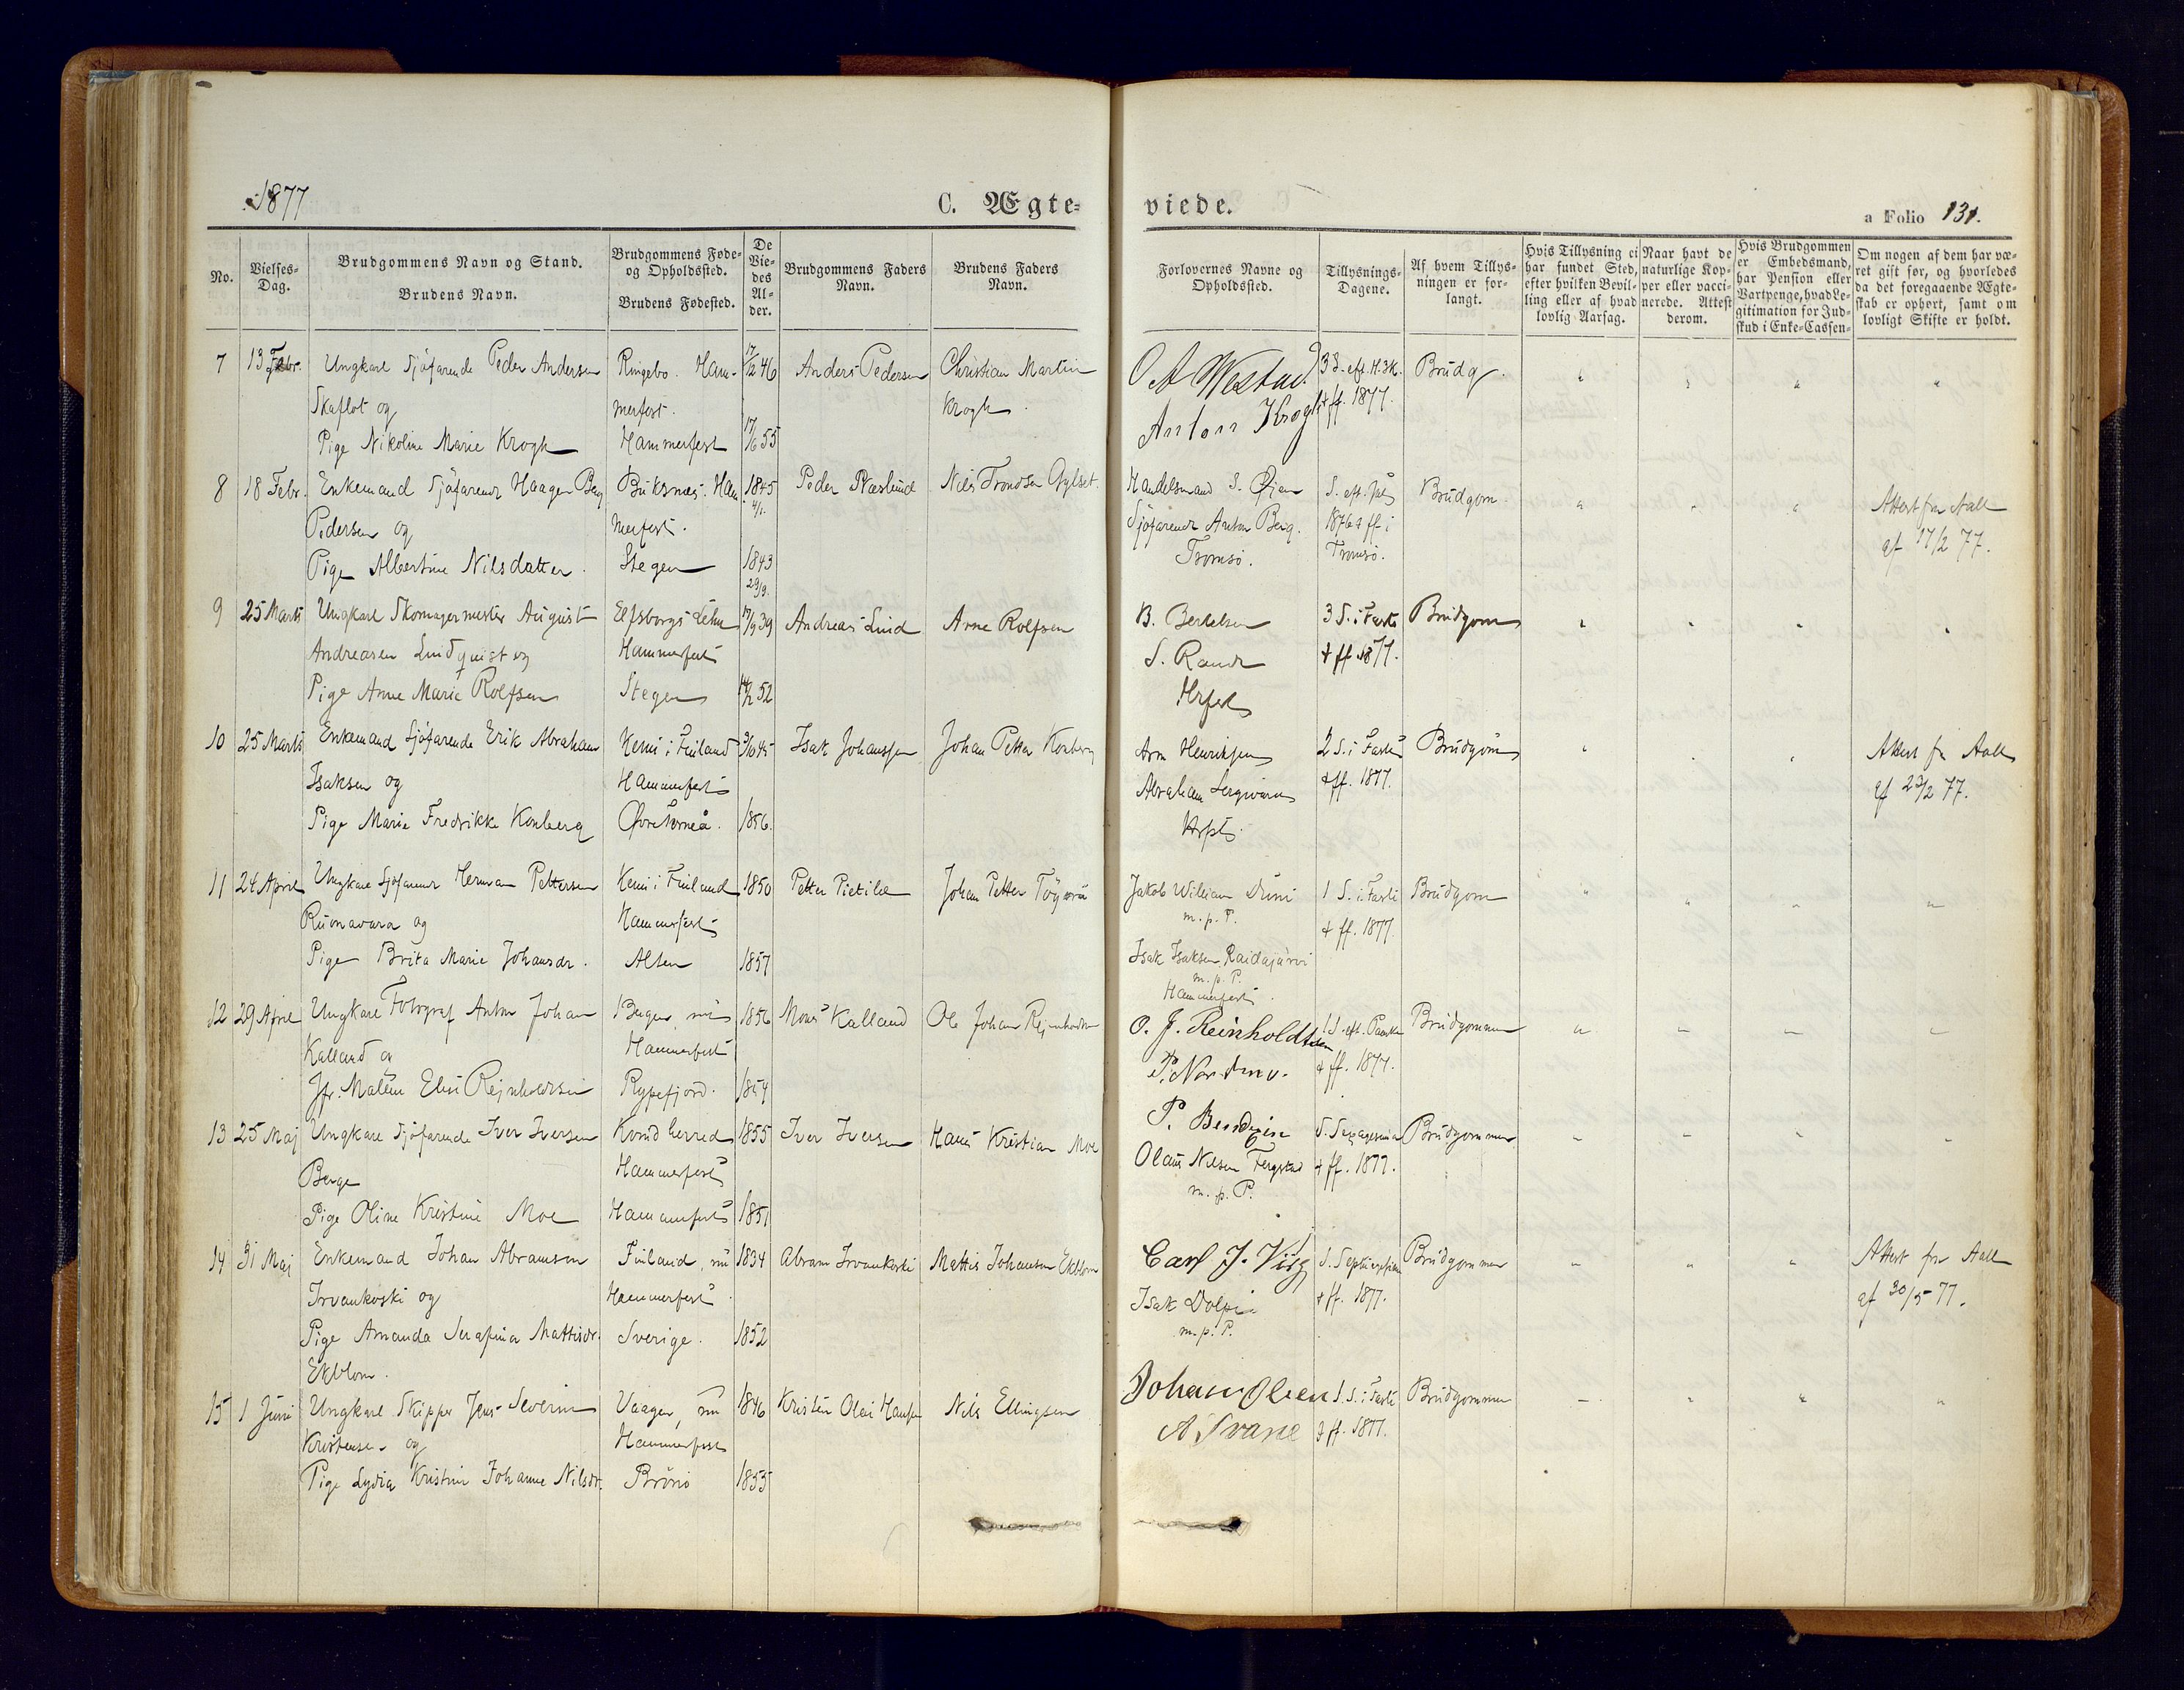 1877
C. Ægte-
viede.
a Folio 131.
No.
Vielses-
Dag.
Brudgommens Navn og Stand.
Brudens Navn.
Brudgommens Føde-
og Opholdssted.
Brudens Fødested.
De
Vie-
des
Al-
der.
Brudgommens Faders
Navn.
Brudens Faders
Navn.
Forlovernes Navne og
Opholdssted.
Tillysnings-
Dagene.
Af hvem Tillys-
ningen er for-
langt.
Hvis Tillysning ei
har fundet Sted,
efter hvilken Bevil-
ling eller af hvad
lovlig Aarsag.
Naar havt de
naturlige Kop-
per eller vacci-
nerede. Attest
derom.
Hvis Brudgommen
er Embedsmand,
har Pension eller
Vartpenge, hvad Le-
gitimation for Ind-
skud i Enke-Cassen-
Om nogen af dem har væ-
ret gift før, og hvorledes
da det foregaaende Ægte-
skab er ophørt, samt om
lovligt Skifte er holdt.
7 13 Febr. Ungkarl Sjøfarende Peder Andersen Ringebo. Ham- 17/12 46 Anders Pedersen Christian Martin O A Westad 3 S. eft. H. 3 K. Brudg.
Skaflot og merfest. Krogh Anton Krogh + ff. 1877.
Pige Nikoline Marie Krogh Hammerfest 17/6 55
8 18 Febr. Enkemand Sjøfarende Haagen Berg Buksnæs. Ham- 1845 Peder Næslund Nils Trondsen Gylset Handelsmand S. Øien S. eft. Jul Brudgom Attest fra Aall
Pedersen og merfest. 4/1. Sjøfarende Anton Berg. 1876 + ff i af 17/2 77.
Pige Albertine Nilsdatter. Stegen 1843 Tromsø. Tromsø.
29/9.
9 25 Marts Ungkarl Skomagermester August Elfsborgs Lehn 17/9 39 Andreas Lind Arne Rolfsen B. Bertelsen 3 S. i Faste Brudgom
Andreasen Lindquist og Hammerfest S. Rande + ff 1877.
Pige Anne Marie Rolfsen Stegen 14/2 52 Hrfest
10 25 Marts Enkemand Sjøfarende Erik Abraham Kemi i Finland 3/10 45 Isak Johanssen Johan Petter Konberg Arn Henriksen 2 S. i Faste Brudgom Attest fr Aall
Isaksen og Hammerfest Abraham + ff. 1877. af 23/2 77.
Pige Marie Fredrikke Konberg Øvre Torneå. 1856. Hrfst.
11 24 April Ungkarl Sjøfarende Herman Pettersen Kemi i Finland 1850 Petter Pietilæ Johan Petter Jakob William Duni 1 S. i Faste Brudgom
Ruonavara og Hammerfest m. p. P. + ff. 1877.
Pige Brita Marie Johansdr. Alten 1857 Isak Isaksen Raidajärvi
m. p. P.
Hammerfest.
12 29 April Ungkarl Fotograf Anton Johan Bergen, nu 1856 Mons Kalland Ole Johan Rejnholdtsen O. J. Reinholdtsen 1 S. eft. Paaske Brudgommen
Kalland og Hammerfest + ff. 1877.
Jfr. Maline Elisi Rejnholdsen Rypefjord. 1854
13 25 Maj Ungkarl Sjøfarende Iver Iversen Kvindherred 1855 Iver Iversen Hans Kristian Moe P. S. Sexagesima Brudgommen
Berge Hammerfest Olaus Nilsen + ff. 1877.
Pige Oline Kristine Moe Hammerfest 1851 m. p. P.
14 31 Maj Enkemand Johan Abramsen Finland, nu 1834 Abram Irvankoski Mattis Johansen Ekblom Carl J. Viig S. Brudgommen Attest fra Aall
Irvankoski og Hammerfest. Isak Dolpi + ff. 1877. af 30/5 77.
Pige Amanda Serafina Mattisdr. Sverige. 1852 m. p. P.
Ekblom.
15 1 Juni Ungkarl Skipper Jens Severin Vaagen, nu 1846 Kristen Olai Hansen Nils Ellingsen Johan Olsen 1 S. i Faste Brudgommen
Kristensen og Hammerfest A Svane + ff. 1877.
Pige Lydia Kristine Johanne Nilsdr. Brønø 1855